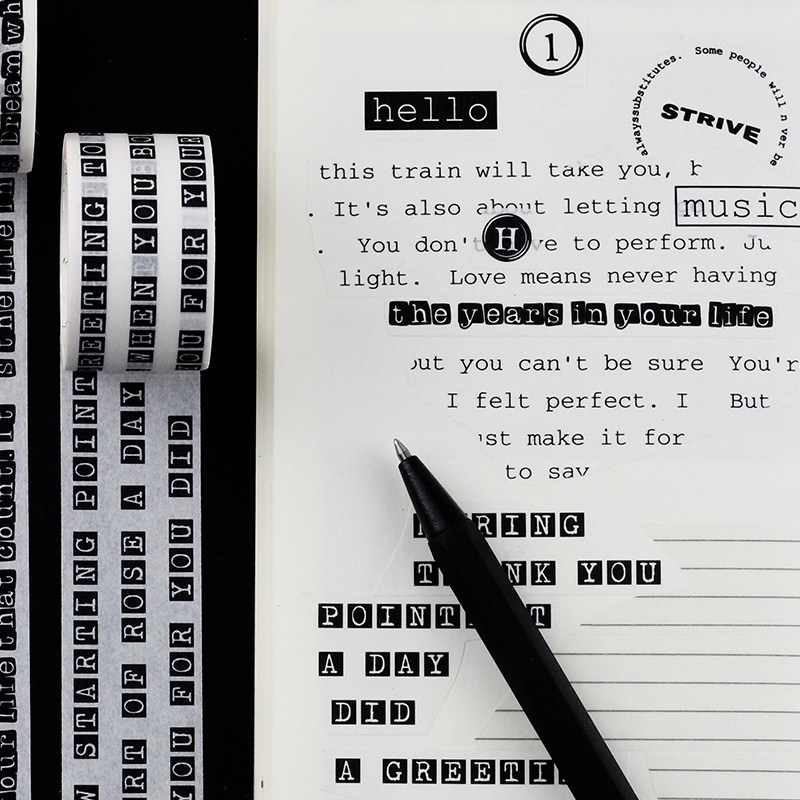 1
hello
Some people will n ver be alwayssubstitutes.
STRIVE
this train will take you,
. It's also about letting
music
. You don't ve to perform.
H
light. Love means never having
the years in your life
you can't be sure You'r
I felt perfect. I But
make it for
to
RING
YOU
POINT
A DAY
DID
A GREETI
REETING TO
WHEN YOU BO
OU FOR YOUR
STARTING POINT
RT OF ROSE A DAY
YOU FOR YOU DID
Dream wh
s the life in
our life that count.It